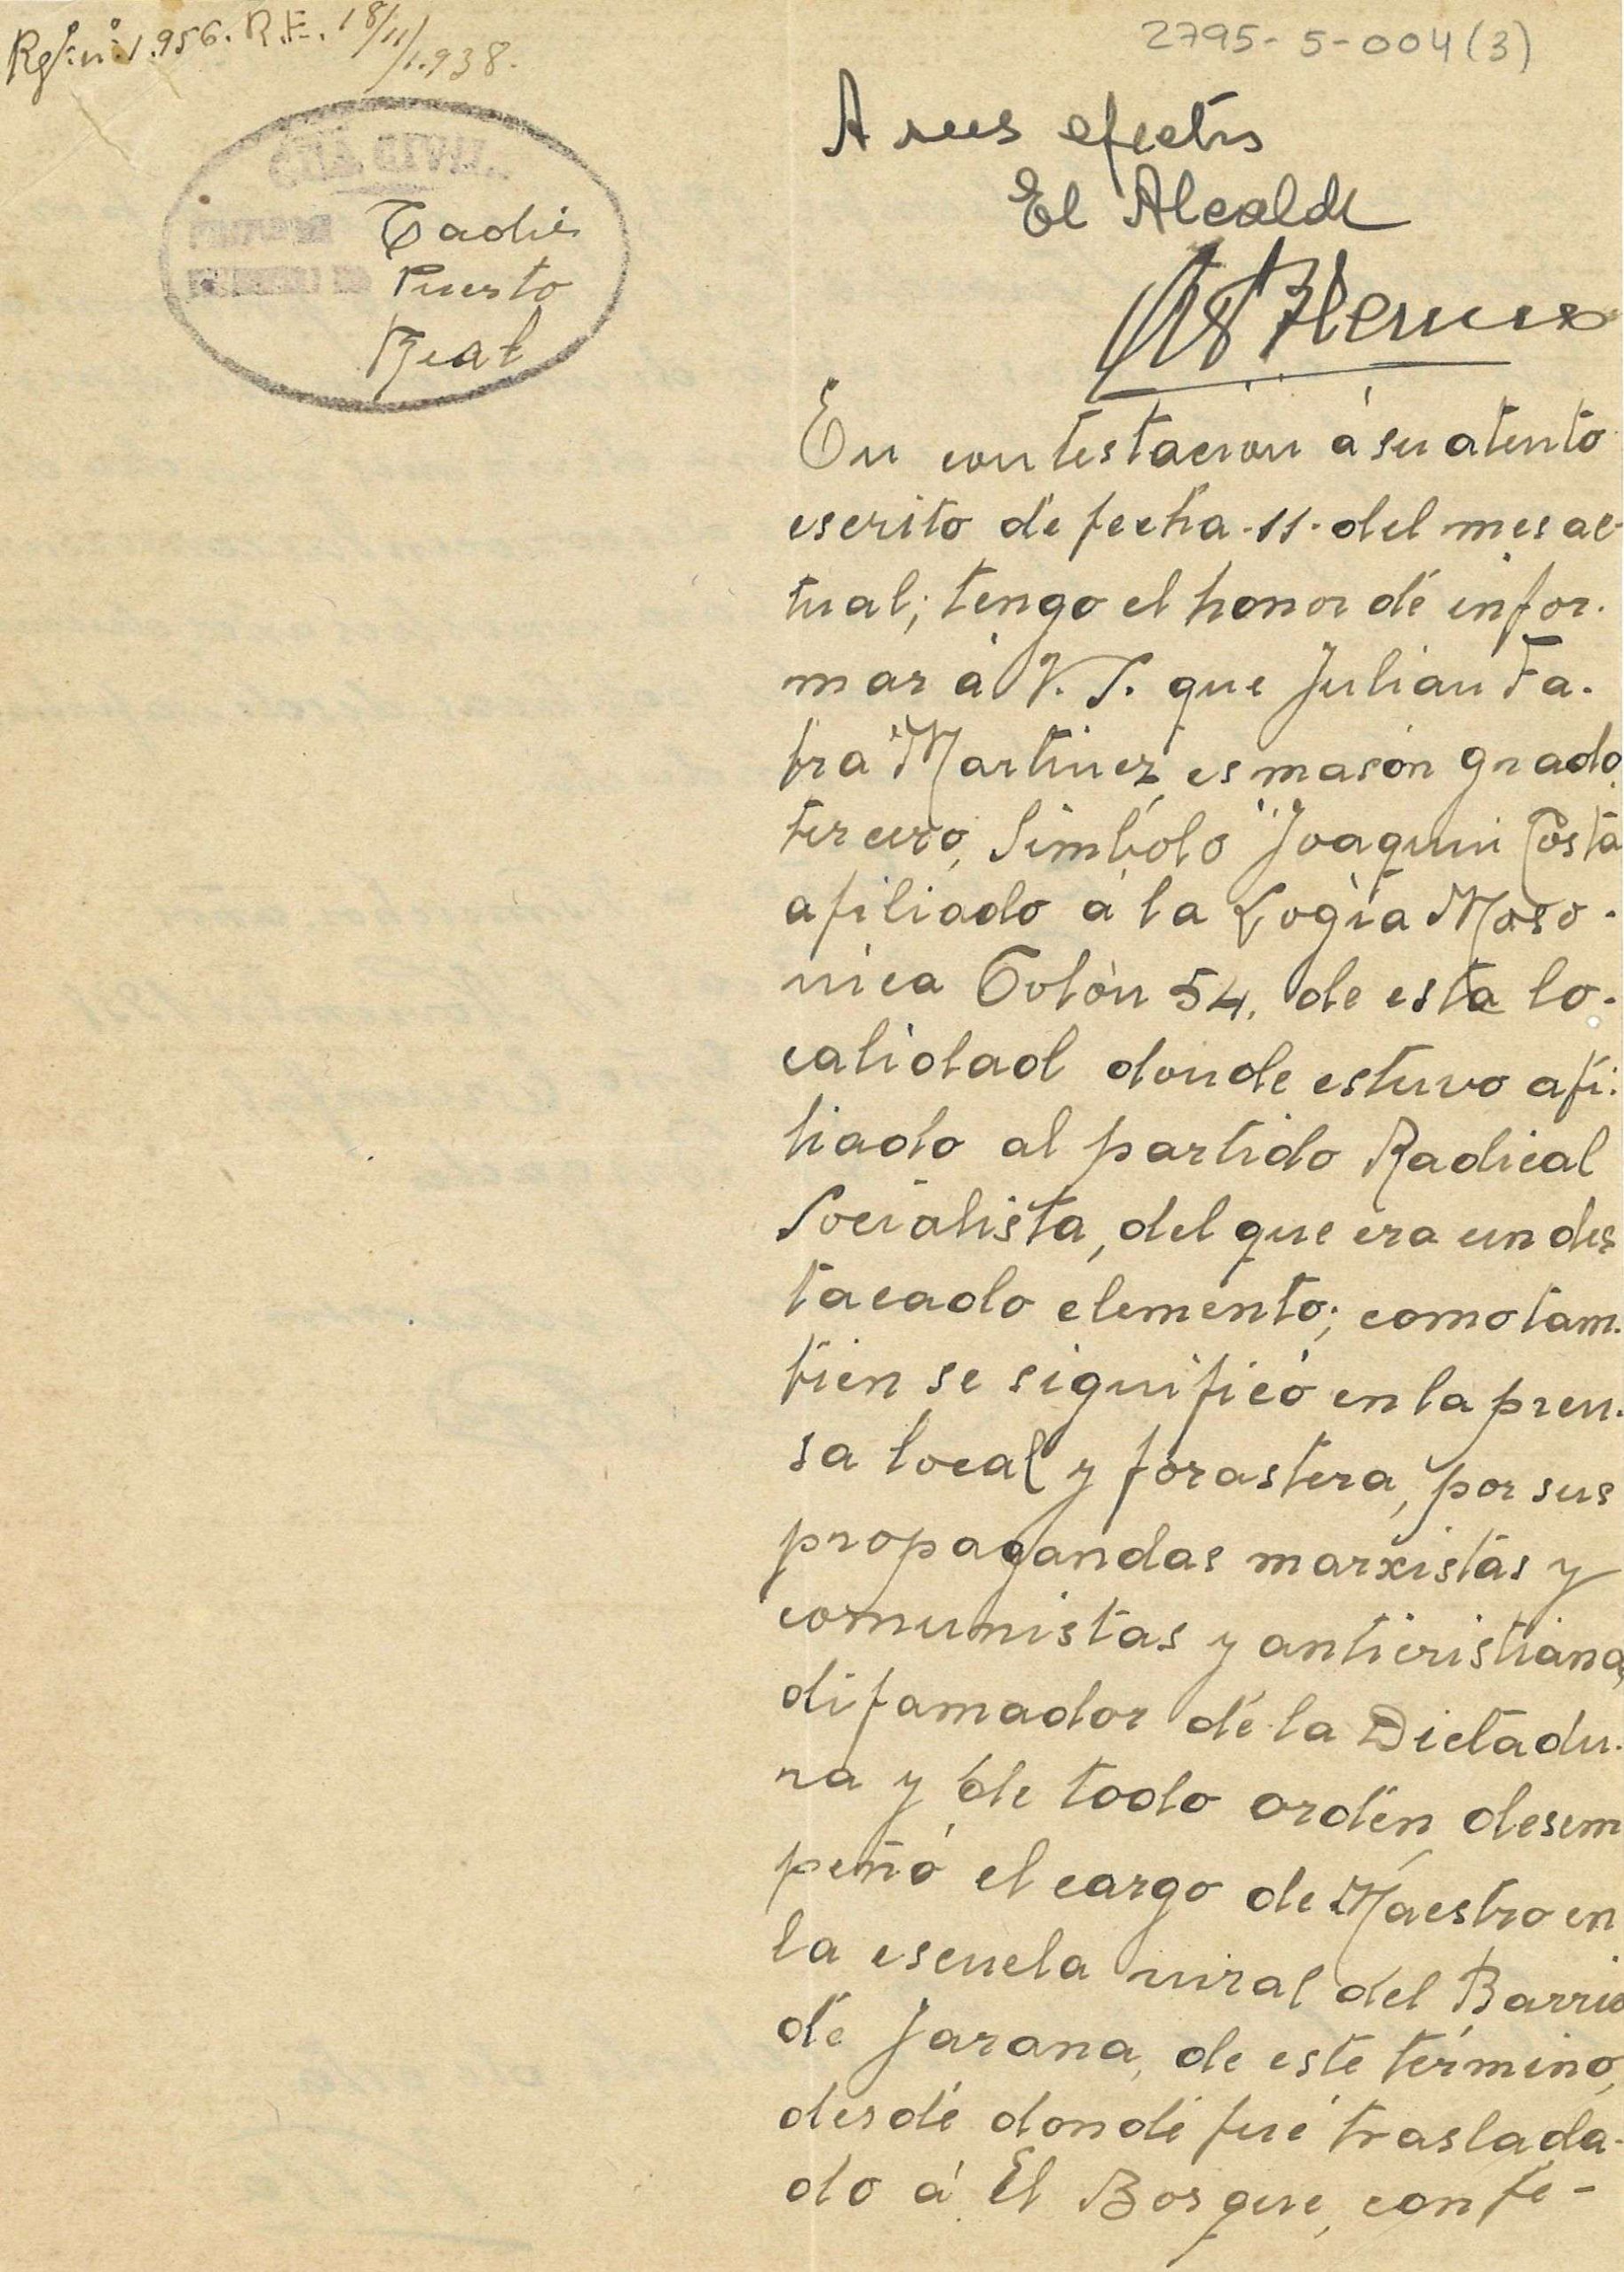 Rg/: nº 1.956. R.E. 18/11/1.938.
2795-5-004(3)
A sus efectos
El Alcalde
CIVIL
Cadiz
Puesto
Real
En contestacion á su atento
escrito de fecha .11. del mes ac-
tual; tengo el honor de infor.
mar á V.S. que Julian Fa.
bra Martinez, es masón grado
tercero, Simbolo "Joaquin Costa
afiliado á la Logia Maso.
nica Colón 54, de esta lo.
calidad donde estuvo afi.
liado al partido Radical
Socialista, del que era un des
tacado elemento; como tam.
bien se significó en la pren.
sa local y forastera, por sus
propagandas marxistas y
comunistas y anticristiana,
difamador de la Dictadu.
ra y de todo orden, desem
peñó el cargo de Maestro en
la escuela rural del Barrio
de Jarana, de este término,
desde donde fué traslada.
do á El Bosque, con fe-